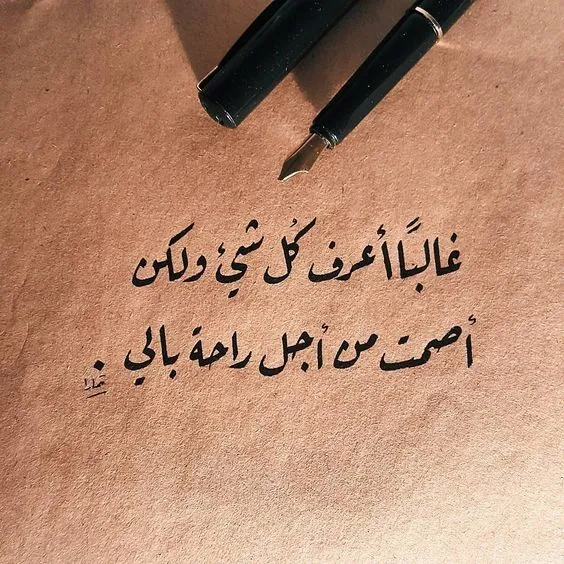 غالبًا أعرف كُل شيئ ولكن
أصمت من أجل راحة بالي .
تمارا